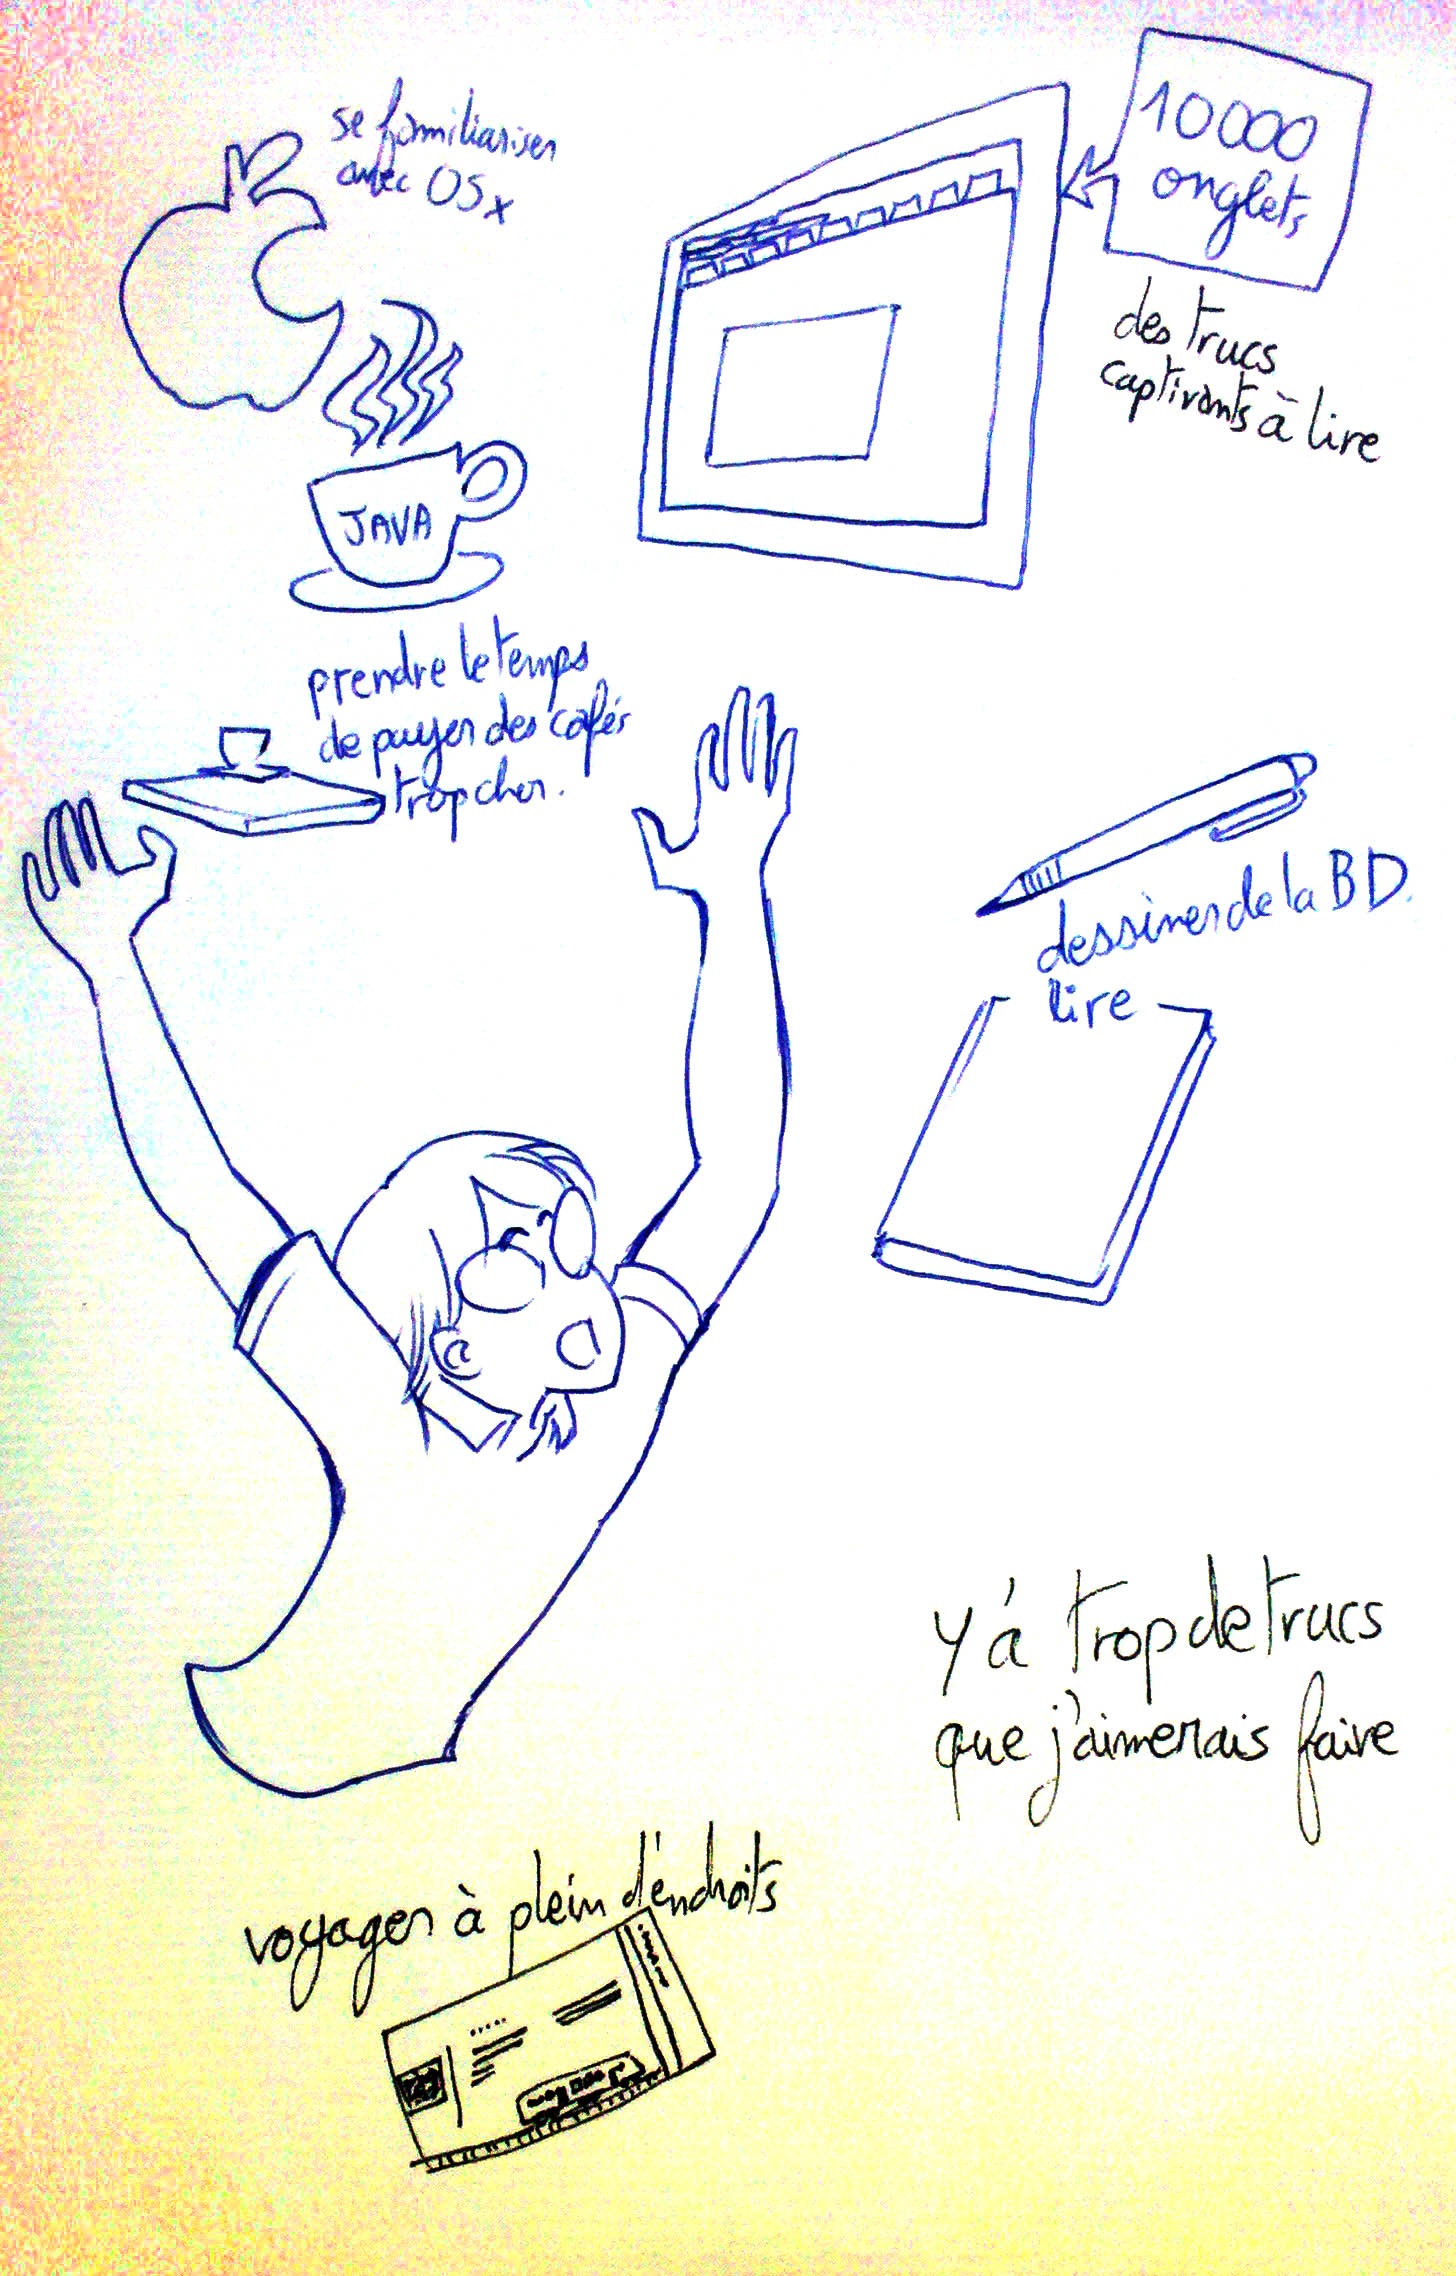 se familiariser
avec OSx
10000
onglets
des trucs
captivants à lire
JAVA
prendre le temps
de payer des cafés
trop cher.
dessiner de la BD.
lire
y'a trop de trucs
que j'aimerais faire
voyager à plein d'endroits